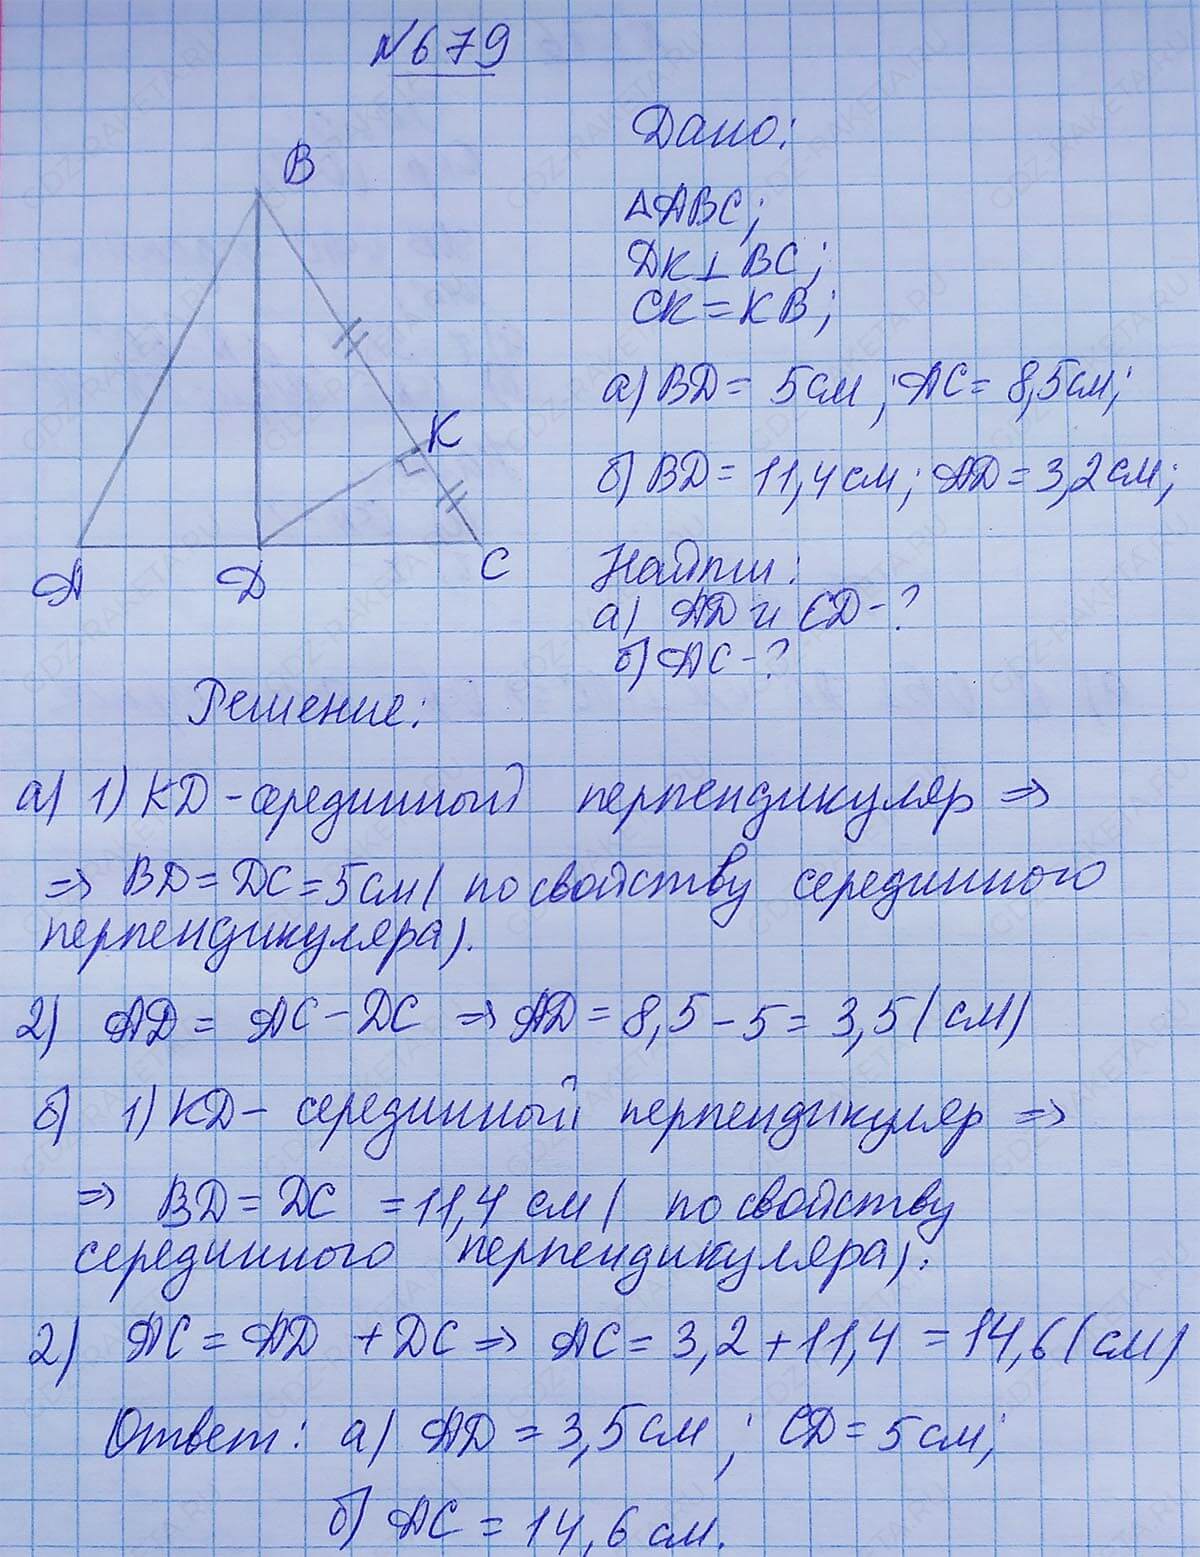 №679
B
K
A
D
C
Дано:
△ABC;
DK⊥BC;
CK=KB;
а) BD= 5см ; AC= 8,5см;
б) BD= 11,4см; AD=3,2см;
Найти:
а) AD и CD-?
б) AC-?
Решение:
а) 1) KD-серединный перпендикуляр ⇒
⇒ BD=DC=5см( по свойству серединного
перпендикуляра).
2) AD = AC-DC ⇒ AD=8,5-5=3,5(см)
б) 1) KD- серединный перпендикуляр ⇒
⇒ BD=DC =11,4 см( по свойству
серединного перпендикуляра).
2) AC=AD+DC⇒ AC=3,2+11,4=14,6(см)
Ответ: а) AD=3,5см; CD=5см;
б) AC=14,6см.
GDZ-RAKETA.RU